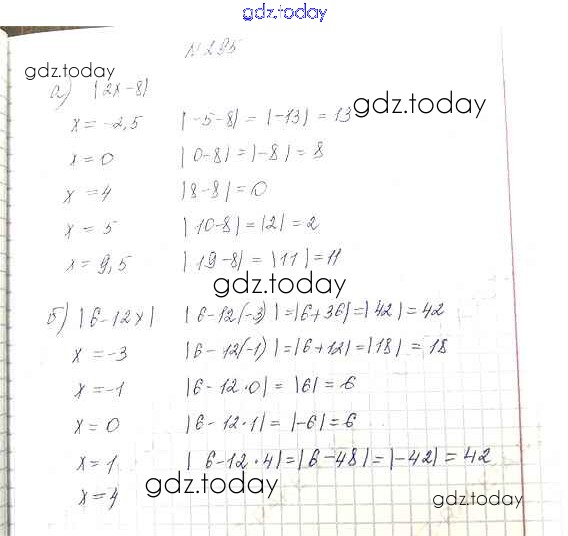 gdz.today
№295
gdz.today
а) |2x-8|
gdz.today
x=-2,5 |-5-8|=|-13|=13
x=0 |0-8|=|-8|=8
x=4 |8-8|=0
x=5 |10-8|=|2|=2
x=9,5 |19-8|=|11|=11
gdz.today
б) |6-12x| |6-12(-3)|=|6+36|=|42|=42
x=-3 |6-12(-1)|=|6+12|=|18|=18
x=-1 |6-12·0|=|6|=6
x=0 |6-12·1|=|-6|=6
x=1 |6-12·4|=|6-48|=|-42|=42
x=4
gdz.today
gdz.today